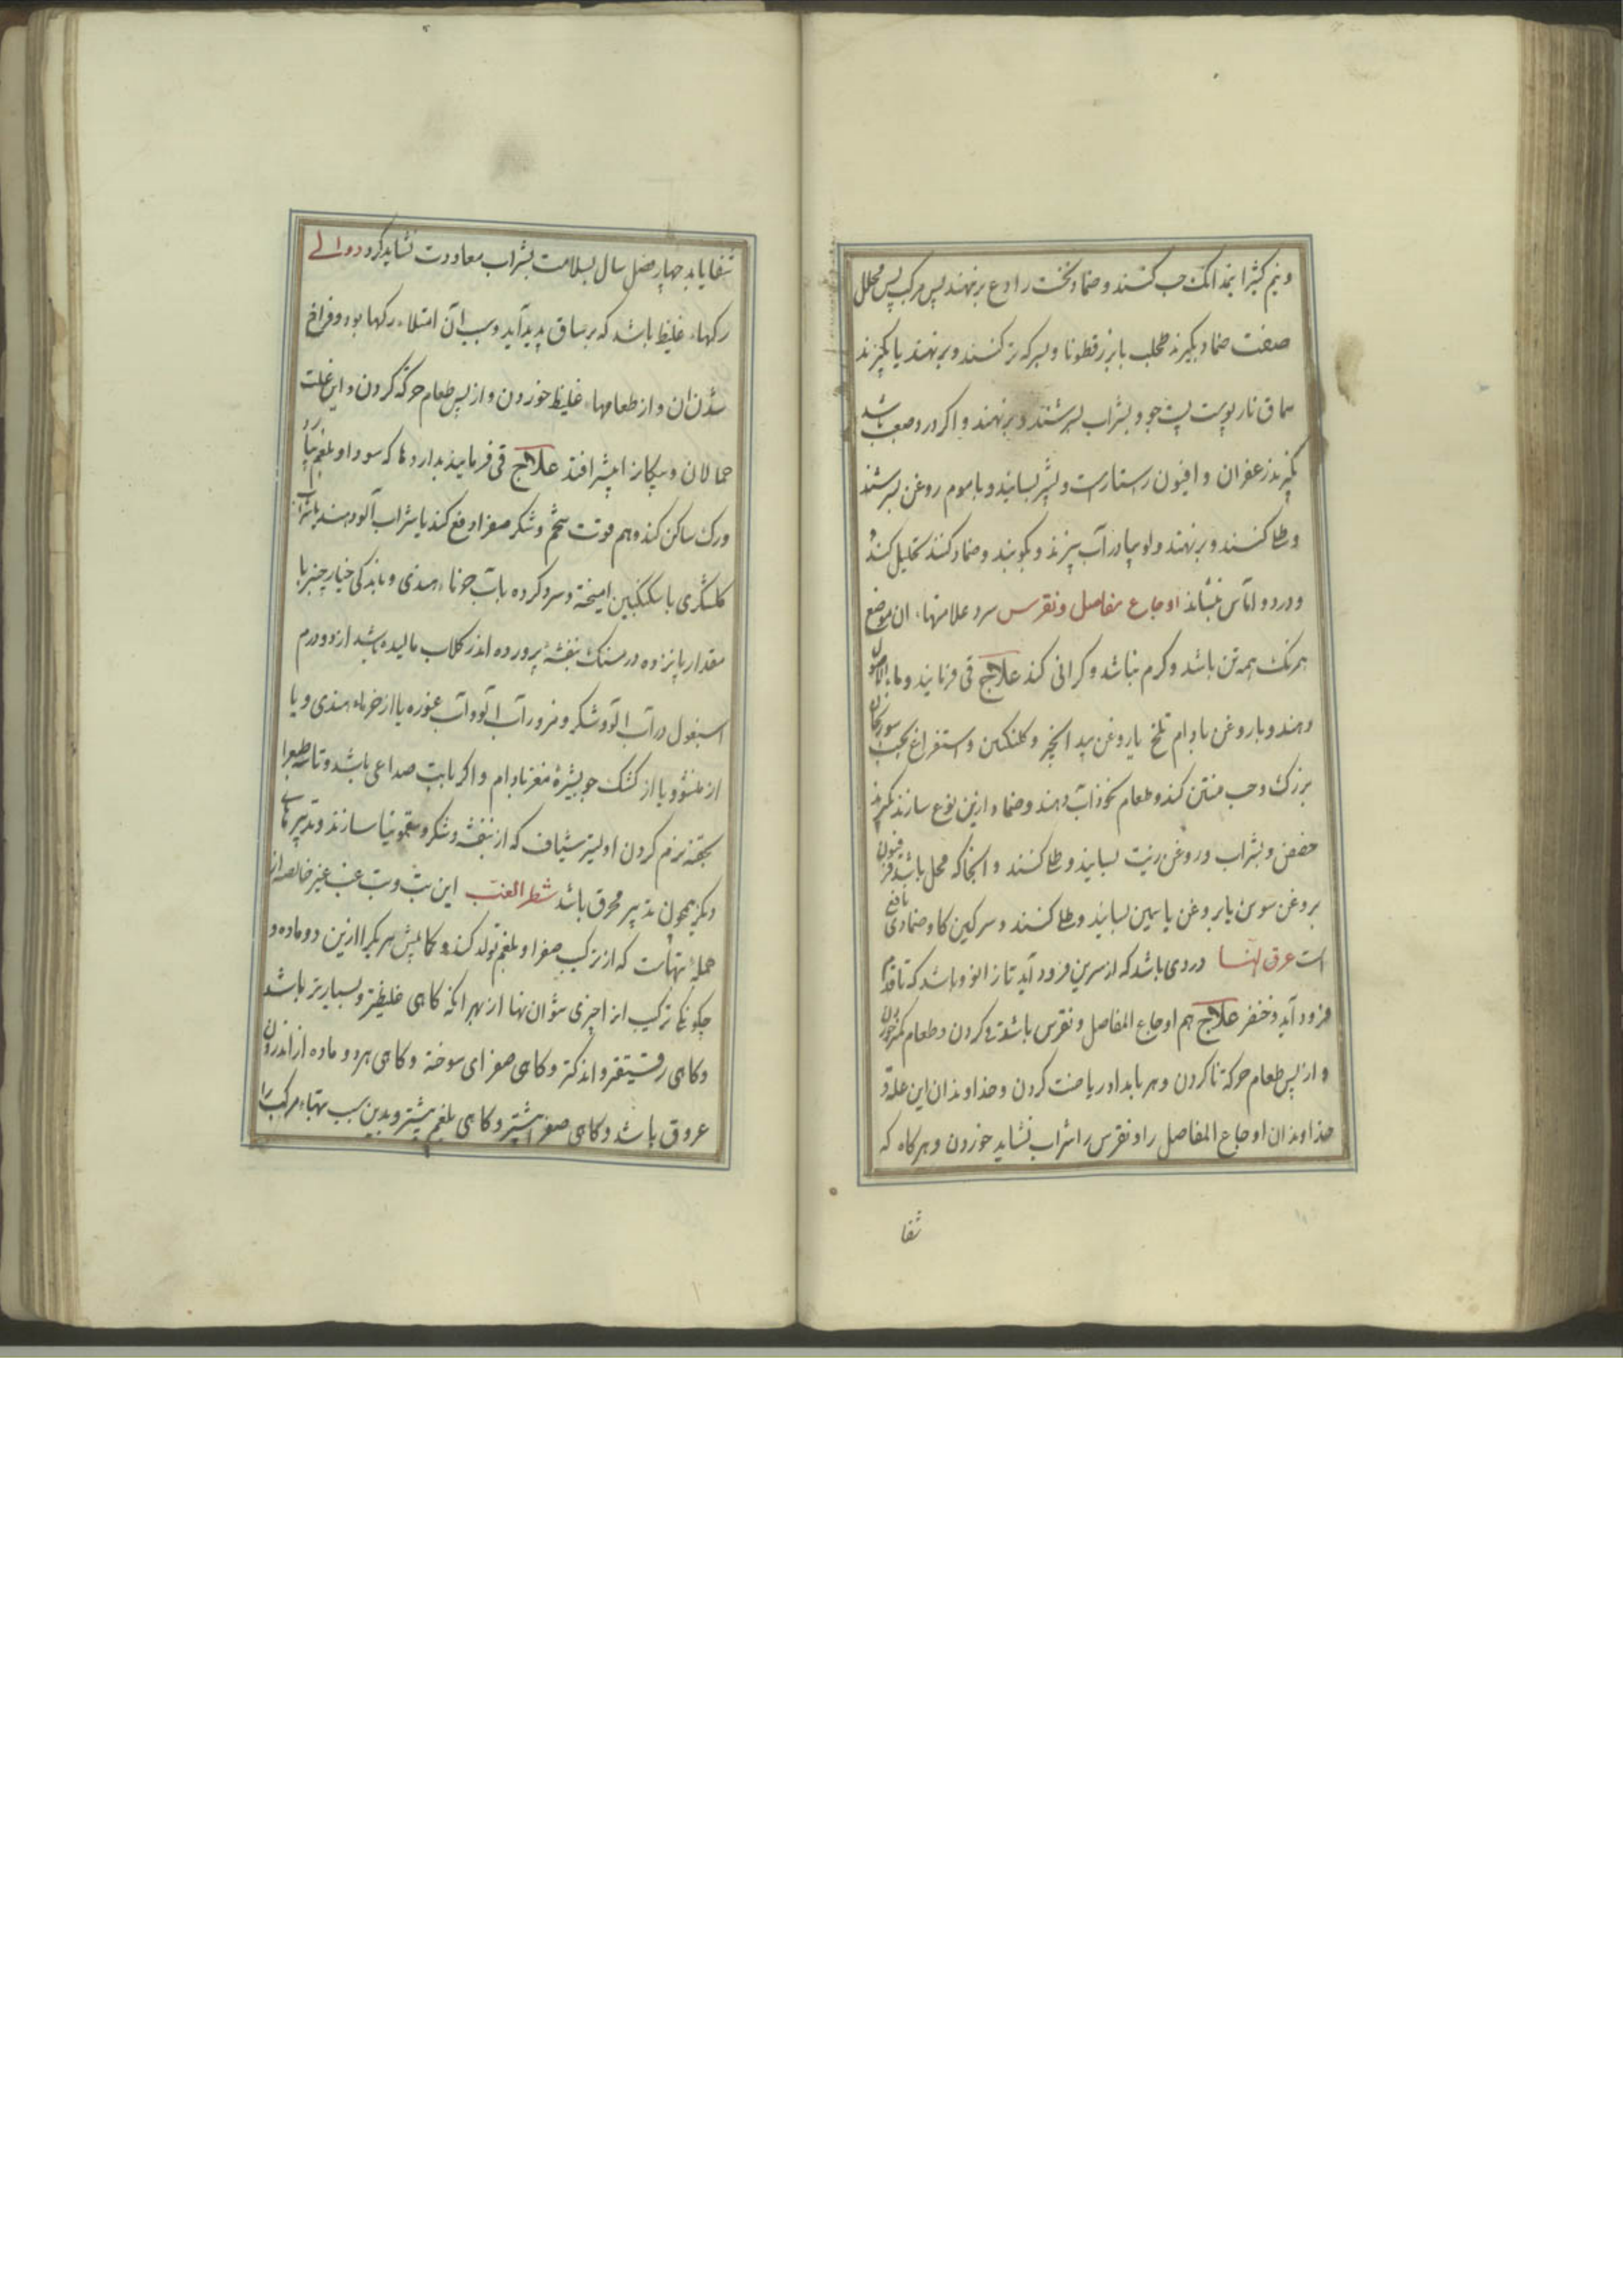 ونیم کثیرا نیمدانک حب کنند وضماد نخست رادع برنهند پس مرکب پس محلل
صفت ضماد بکیرند طحلب بابزرقطونا وبسرکه تر کنند وبرنهند یا بکیرند
سماق نارپوست پست جو وبشراب بسرشند وبرنهند واکر درد صعب باشد
بکیرند زعفران وافیون راستاراست وبشیر بسایند وباموم روغن بسرشند
وطلا کنند وبرنهند ولوبیا در آب بپزند وبکوبند وضماد کنند تحلیل کند
ودرد واماس بنشاند اوجاع مفاصل ونقرس سرد علامتهاء ان موضع
همرنک همه تن باشد وکرم نباشد وکرانی کند علاج قی فرمایند وماء الاصول
دهند وباروغن بادام تلخ یاروغن بید انجیر وکلنکبین واستفراغ بحب سورنجان
بزرک وحب منتن کند وطعام نخوداب دهند وضماد ازین نوع سازند بکیرند
حضض وبشراب وروغن زیت بسایند وطلا کنند وانجاکه محلل باشد فرفیون
بروغن سوسن یابروغن یاسمین بسایند وطلا کنند وسرکین کاو ضمادی نافع
است عرق النسا دردی باشد که از سرین فرود آید تا زانو وباشد که تا قدم
فرود آید وخنصر علاج هم اوجاع المفاصل ونقرس باشد قی کردن وطعام کمتر خوردن
واز پس طعام حرکة ناکردن وهر بامداد ریاضت کردن وخداوندان این علة و
خداوندان اوجاع المفاصل را ونقرس را شراب نشاید خوردن وهرکاه که
شفا
شفا یابد چهار فصل سال بسلامت بشراب معاودت نشاید کرد دوالی
رکهاء غلیظ باشد که برساق پدید آید وسبب آن امتلاء رکها بود وفراخ
شدن ان واز طعامهاء غلیظ خوردن واز پس طعام حرکة کردن واین علت
حمالان وپیکانرا بیشتر افتد علاج قی فرمایند بداروها که سودا وبلغم بیارد
ورک ساکن کند وهم قوت تخم وشکر صفرا دفع کند یا شراب آلو دهند یا شراب
کلشکری باسکنکبین امیخته وسرد کرده باب خرماء هندی وباندکی خیارچنبر با
مقدار پانزده درمسنک بنفشه پرورده اندر کلاب مالیده باشد از دو درم
اسبغول در آب الو وشکر ومزور آب الو وآب غوره یا از خرماء هندی ویا
از ملنشو ویا از کشک جو بشیرهٔ مغز بادام واکر بابت صداعی باشد وتاسه طبع را
بحقنه نرم کردن اولیتر شیاف که از بنفشه وشکر وسقمونیا سازند وتدبیرهای
دیکر همچون تدبیر محرق باشد شطر الغب این تب وتب غب غیر خالصه از
جملهٔ تبهاست که از ترکیب صفرا وبلغم تولد کند وکمابیش هر یکرا ازین دو ماده و
چکونکی ترکیب از اجزای شوان تنها از بهر انکه کاهی غلیظتر وبسیارتر باشد
وکاهی رقیقتر واندکتر وکاهی صفرای سوخته وکاهی هر دو ماده از اندرون
عروق باشد وکاهی صفرا بیشتر وکاهی بلغم بیشتر وبدین سبب تبهاء مرکب را